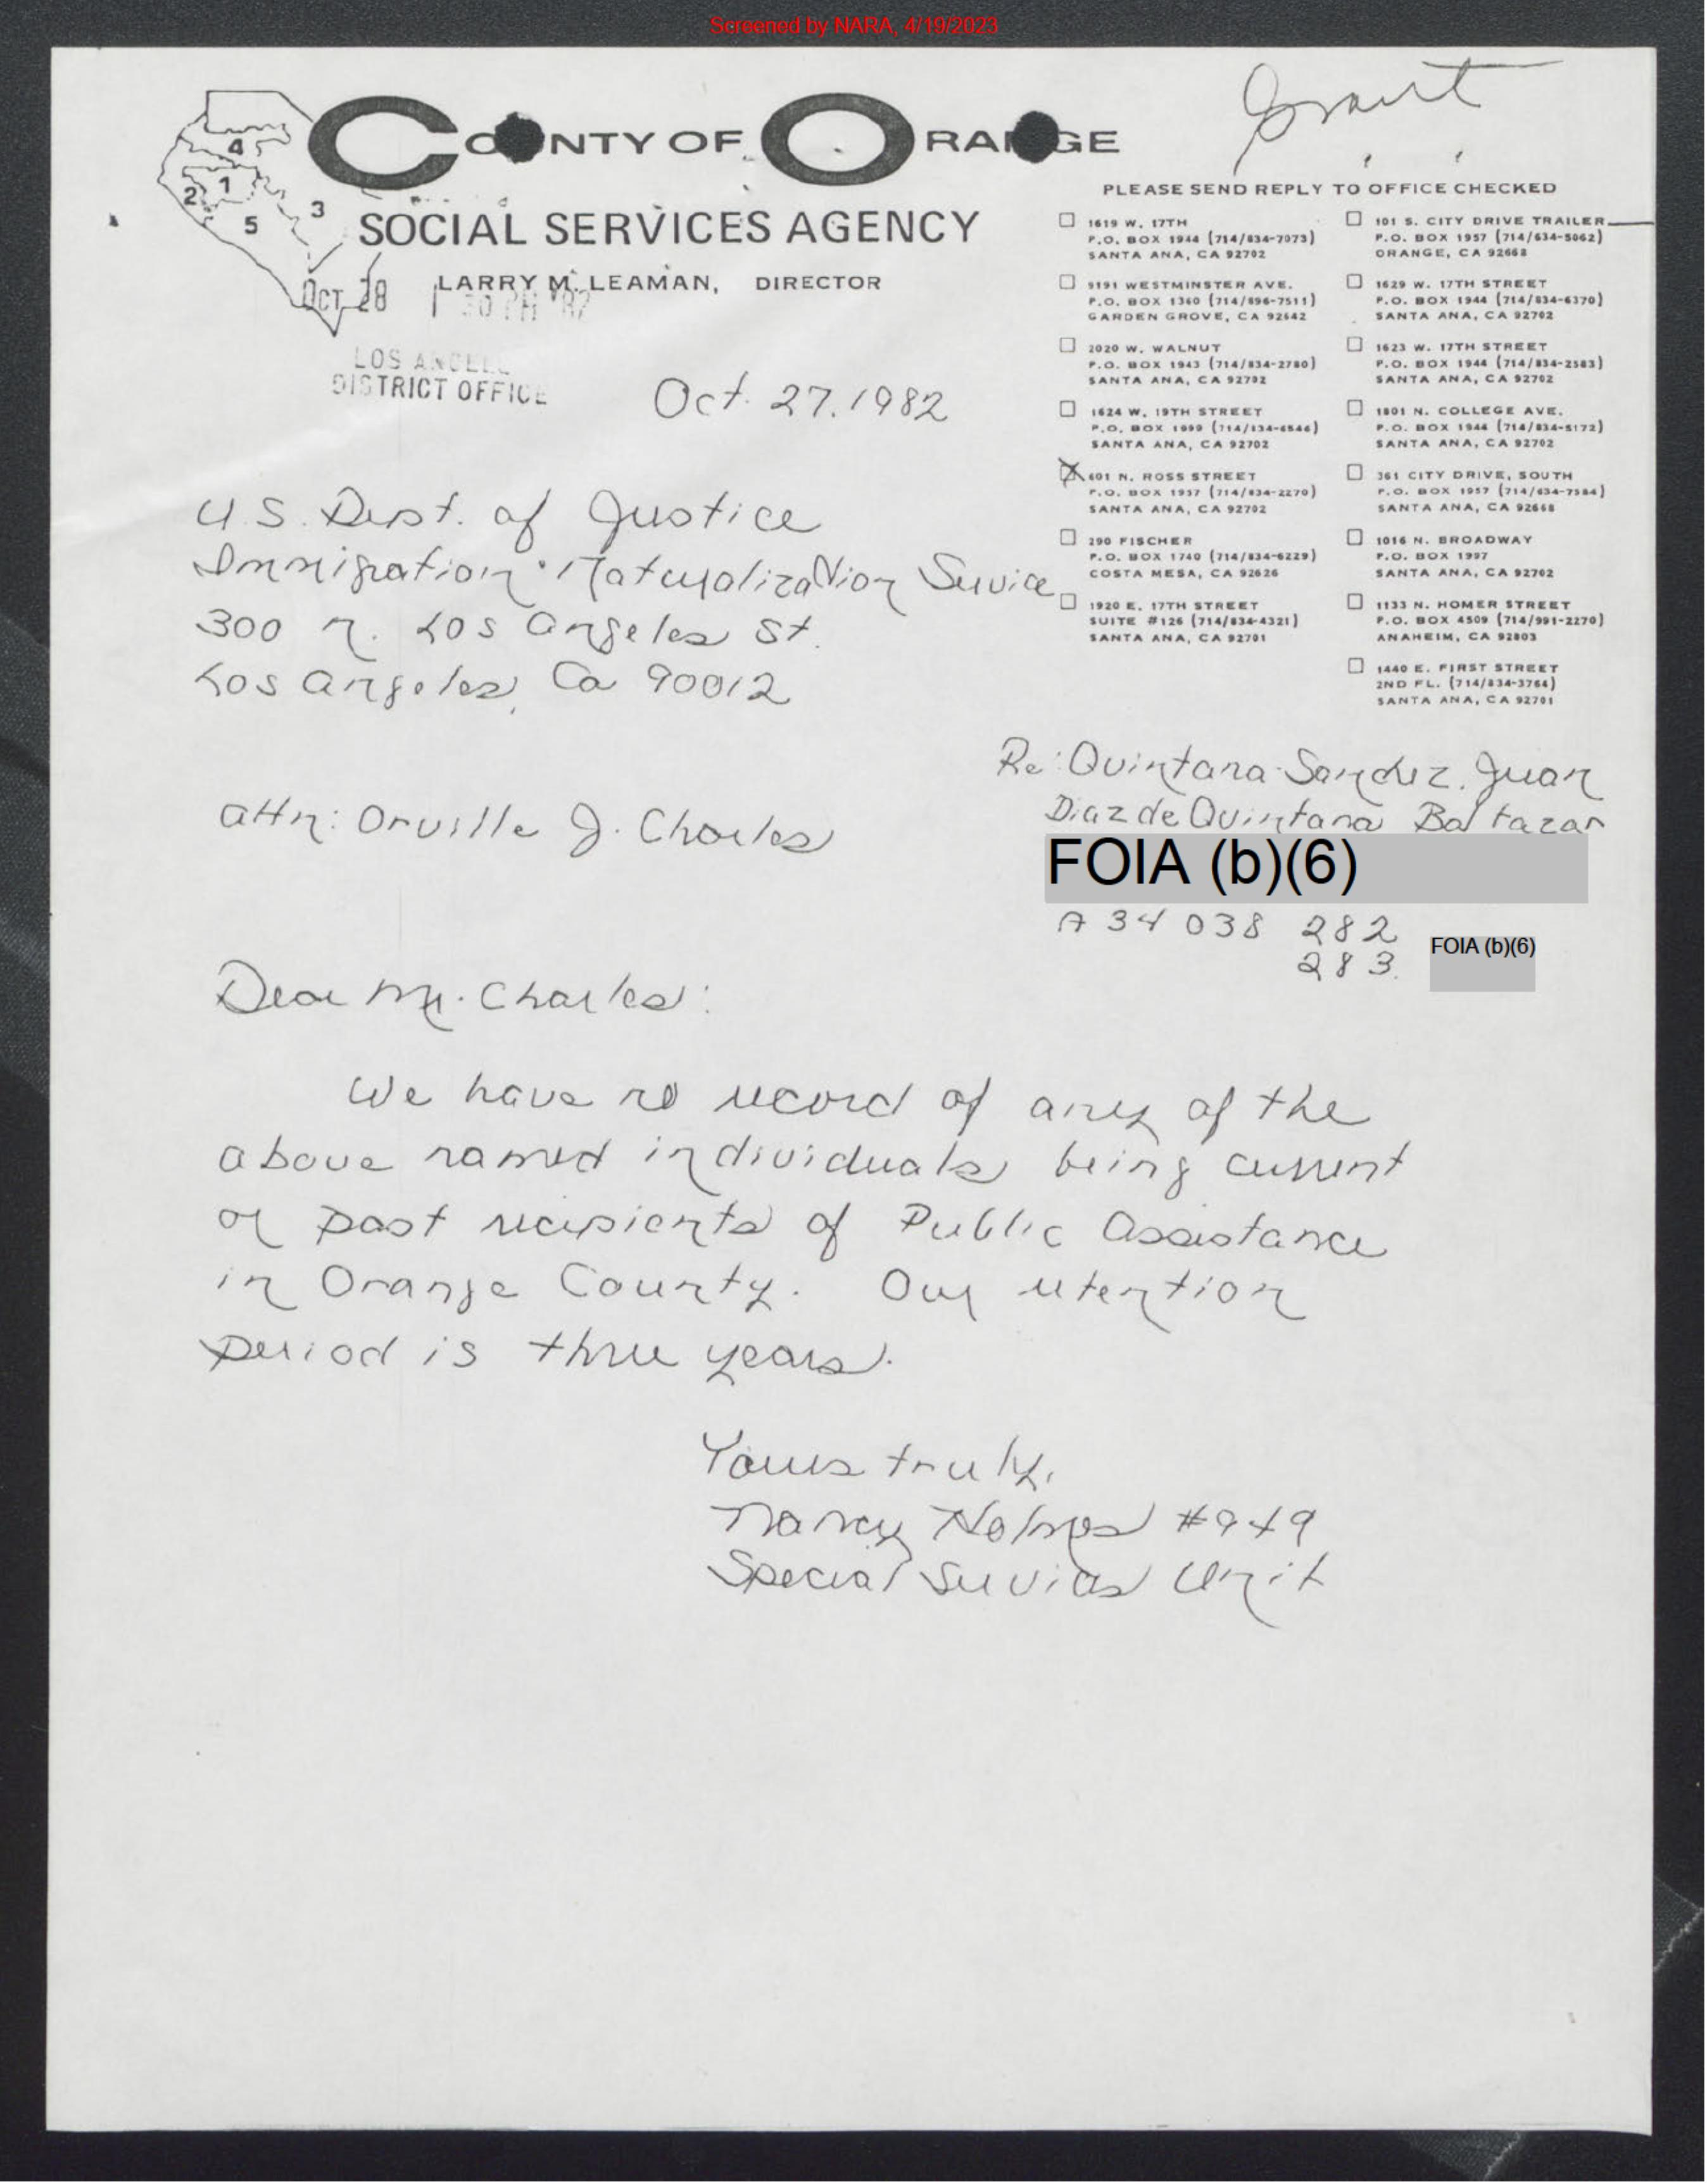 Screened by NARA, 4/19/2023
Grant
COUNTY OF ORANGE
4
2 1
3
5
SOCIAL SERVICES AGENCY
LARRY M. LEAMAN, DIRECTOR
OCT 28 1 30 PM '82
LOS ANGELES
DISTRICT OFFICE
PLEASE SEND REPLY TO OFFICE CHECKED
1619 W. 17TH
P.O. BOX 1944 (714/834-7073)
SANTA ANA, CA 92702
9191 WESTMINSTER AVE.
P.O. BOX 1360 (714/896-7511)
GARDEN GROVE, CA 92642
2020 W. WALNUT
P.O. BOX 1943 (714/834-2780)
SANTA ANA, CA 92702
1624 W. 19TH STREET
P.O. BOX 1999
SANTA ANA, CA 92702
X 601 N. ROSS STREET
P.O. BOX 1957 (714/834-2270)
SANTA ANA, CA 92702
290 FISCHER
P.O. BOX 1740 (714/834-6229)
COSTA MESA, CA 92626
1920 E. 17TH STREET
SUITE #126 (714/834-4321)
SANTA ANA, CA 92701
101 S. CITY DRIVE TRAILER
P.O. BOX 1957 (714/634-5062)
ORANGE, CA 92668
1629 W. 17TH STREET
P.O. BOX 1944 (714/834-6370)
SANTA ANA, CA 92702
1623 W. 17TH STREET
P.O. BOX 1944 (714/834-2583)
SANTA ANA, CA 92702
1801 N. COLLEGE AVE.
P.O. BOX 1944 (714/834-5172)
SANTA ANA, CA 92702
361 CITY DRIVE, SOUTH
P.O. BOX 1957 (714/634-7584)
SANTA ANA, CA 92668
1016 N. BROADWAY
P.O. BOX 1997
SANTA ANA, CA 92702
1133 N. HOMER STREET
P.O. BOX 4509 (714/991-2270)
ANAHEIM, CA 92803
1440 E. FIRST STREET
2ND FL. (714/834-3764)
SANTA ANA, CA 92701
Oct. 27. 1982
U.S. Dept. of Justice
Immigration · Naturalization Service
300 N. Los Angeles St.
Los Angeles, Ca 90012
Re: Quintana-Sanchez, Juan
Diaz de Quintana Baltazar
Attn: Orville J. Charles
FOIA (b)(6)
A 34 038 282
283.
FOIA (b)(6)
Dear Mr. Charles:
We have no record of any of the
above named individuals being current
or past recipients of Public Assistance
in Orange County. Our retention
period is three years.
Yours truly,
Nancy Holmes #949
Special Services Unit